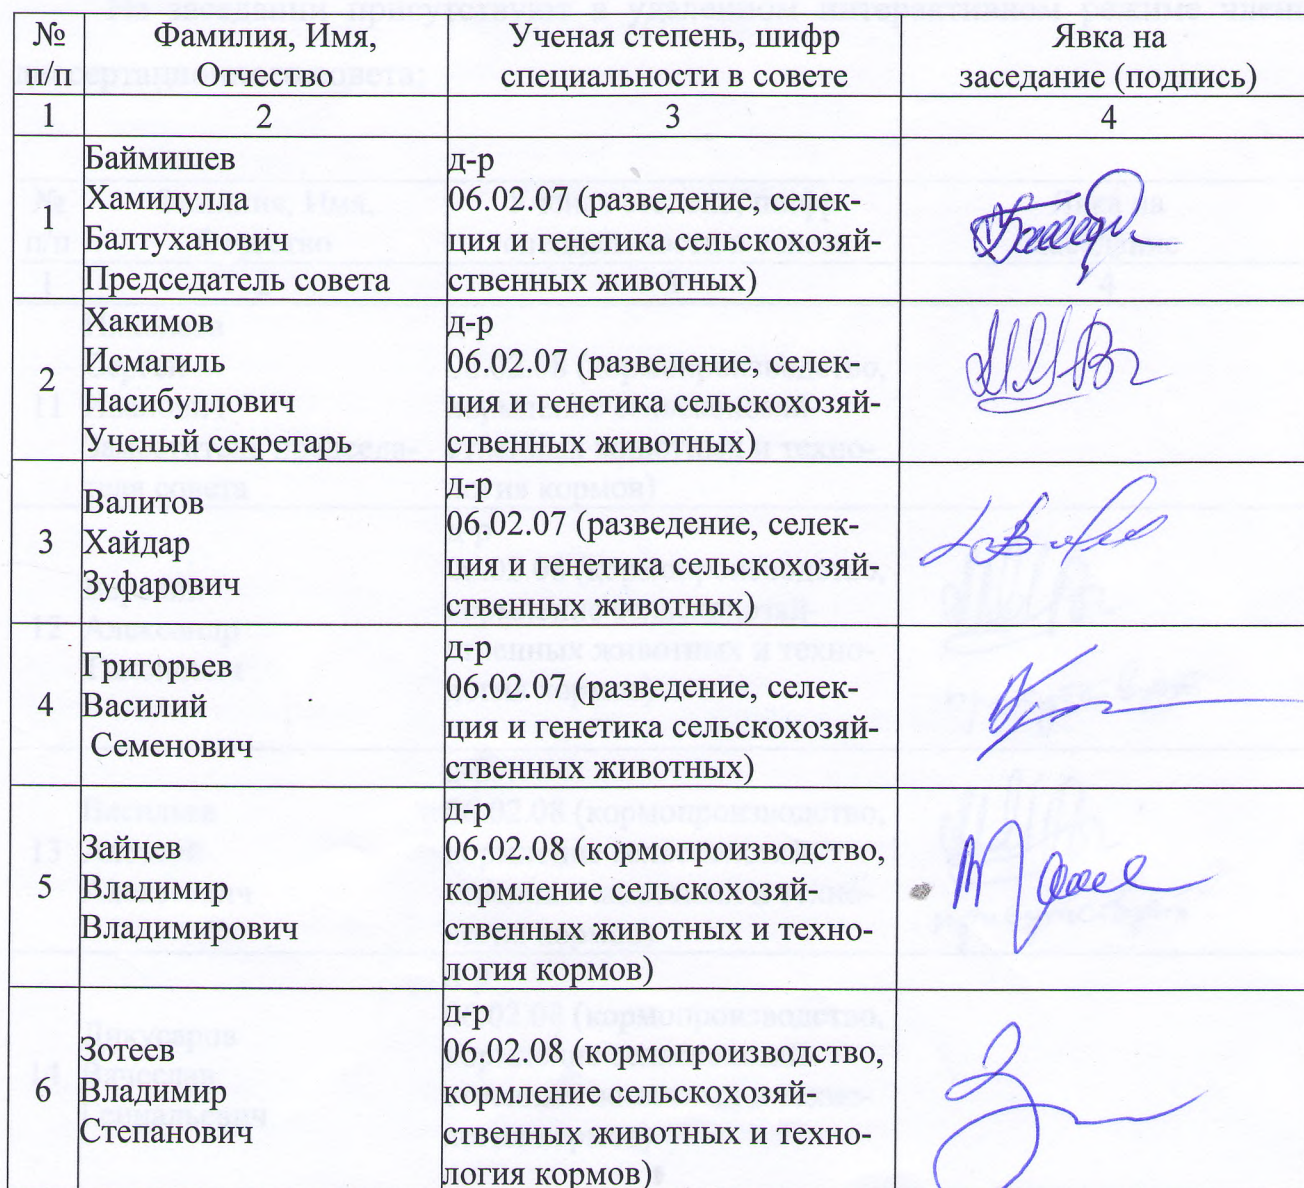 № п/п
Фамилия, Имя,
Отчество
Ученая степень, шифр
специальности в совете
Явка на
заседание (подпись)
1 2 3 4
1
Баймишев
Хамидулла
Балтуханович
Председатель совета
д-р
06.02.07 (разведение, селек-
ция и генетика сельскохозяй-
ственных животных)
2
Хакимов
Исмагиль
Насибуллович
Ученый секретарь
д-р
06.02.07 (разведение, селек-
ция и генетика сельскохозяй-
ственных животных)
3
Валитов
Хайдар
Зуфарович
д-р
06.02.07 (разведение, селек-
ция и генетика сельскохозяй-
ственных животных)
4
Григорьев
Василий
Семенович
д-р
06.02.07 (разведение, селек-
ция и генетика сельскохозяй-
ственных животных)
5
Зайцев
Владимир
Владимирович
д-р
06.02.08 (кормопроизводство,
кормление сельскохозяй-
ственных животных и техно-
логия кормов)
6
Зотеев
Владимир
Степанович
д-р
06.02.08 (кормопроизводство,
кормление сельскохозяй-
ственных животных и техно-
логия кормов)